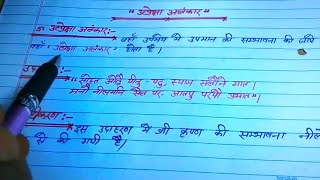 "उत्प्रेक्षा अलंकार"
जहाँ उपमेय में उपमान की सम्भावना की जाये
वहाँ 'उत्प्रेक्षा अलंकार' होता है।
सोहत ओढ़े पीत-पट, स्याम सलौने गात।
मनो नीलमनि सैल पर, आतपु पर्यो प्रभात"।
इस उदाहरण में श्री कृष्ण की सम्भावना
से की गयी है।